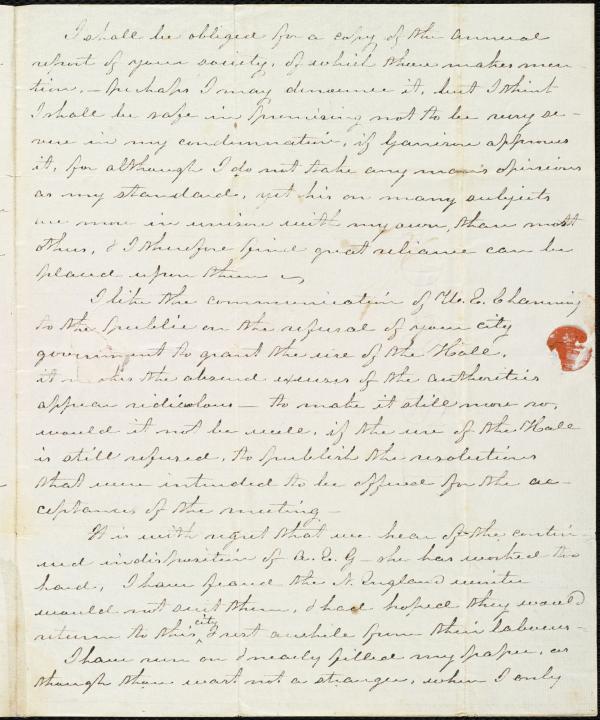 I shall be obliged for a copy of the annual
report of your society, of which thou makes men-
tion. — perhaps I may denounce it, but I think
I shall be safe in promising not to be very se-
vere in my condemnation, if Garrison approves
it, for although I do not take any man's opinions
as my standard, yet his on many subjects
are more in unison with my own, than most
others, & I therefore find great reliance can be
placed upon them —
I like the communication of W. E. Channing
to the public on the refusal of your city
government to grant the use of the Hall,
it makes the absurd excuses of the authorities
appear ridiculous — to make it still more so,
would it not be well, if the use of the Hall
is still refused, to publish the resolutions
that were intended to be offered for the ac-
ceptance of the meeting —
It is with regret that we hear of the contin-
ued indisposition of A. E. G — she has worked too
hard, I have feared the N. England winter
would not suit them, & had hoped they would
return to this city & rest awhile from their labours —
I have run on & nearly filled my paper, as
though thou wast not a stranger, when I only